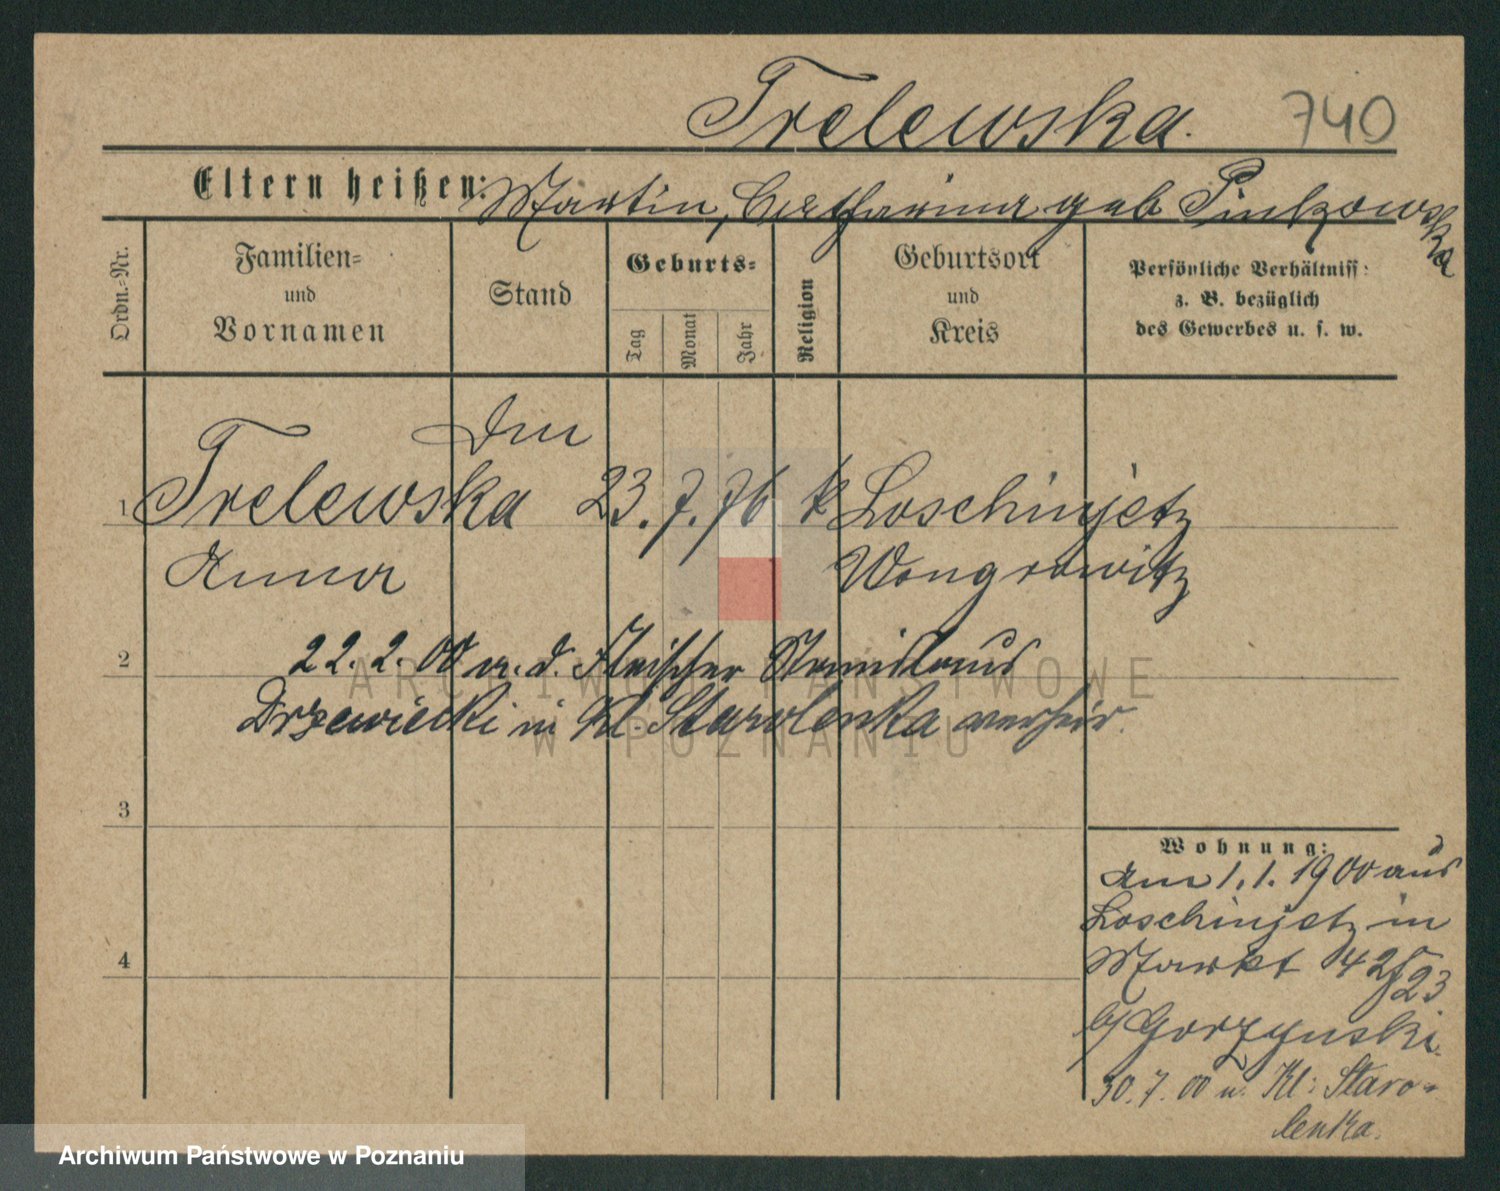 Trelewska.
740
Eltern heißen: Martin, Catharina geb Pinkowska
Ordn.-Nr.
Familien- und Vornamen
Stand
Geburts-
Tag
Monat
Jahr
Religion
Geburtsort und Kreis
Persönliche Verhältniss:
z. B. bezüglich
des Gewerbes u. s. w.
1 Trelewska 23. 7. 76 k Loschinjetz
Anna Wongrowitz
2 22. 2. 00 m. d. Fleischer Stanislaus
Drzewiecki in Kl. Starolenka verheir.
3
Wohnung:
Am 1. 1. 1900 aus
Loschinjetz in
4 Markt 42
23
b/ Gorzynski
30. 7. 00 n. Kl: Staro-
lenka.
ARCHIWUM PAŃSTWOWE
W POZNANIU
Archiwum Państwowe w Poznaniu